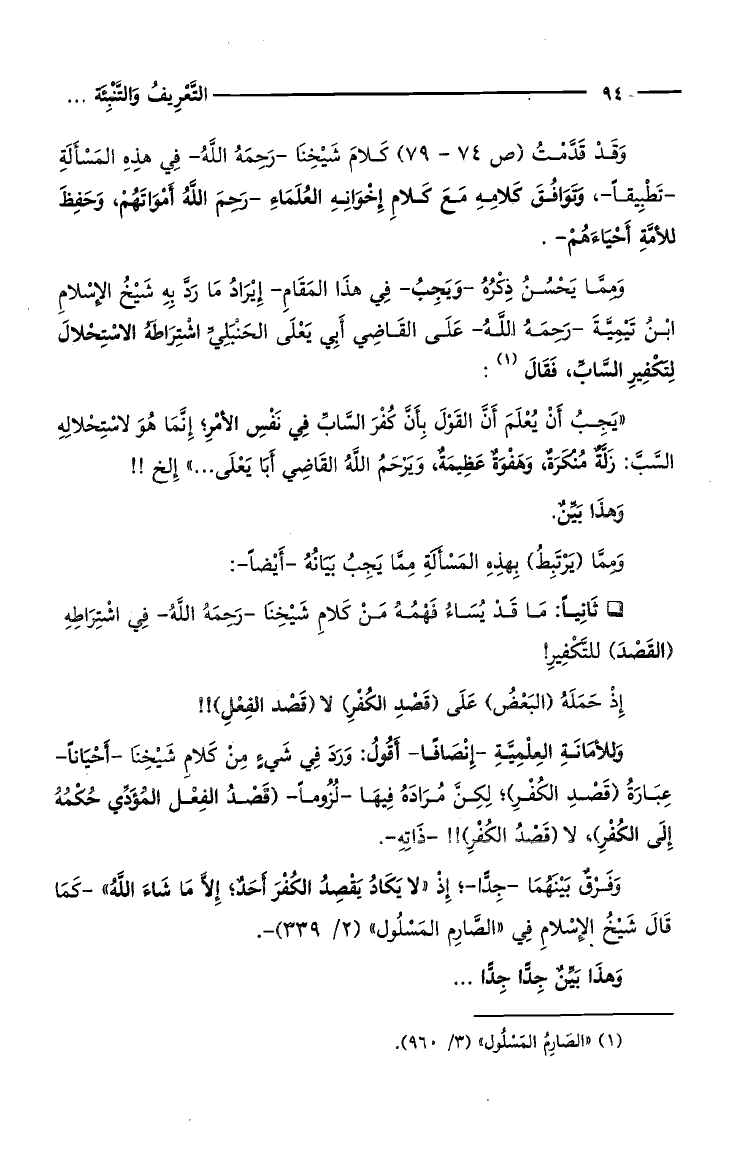 ٩٤ التَّعْرِيفُ وَالتَّنْبِئَة ...
وَقَدْ قَدَّمْتُ (ص ٧٤ - ٧٩) كَلامَ شَيْخِنَا -رَحِمَهُ اللَّهُ- فِي هذِهِ المَسْأَلَةِ
-تَطْبِيقاً-، وَتَوَافُقَ كَلامِهِ مَعَ كَلامِ إِخْوَانِهِ العُلَمَاءِ -رَحِمَ اللَّهُ أَمْوَاتَهُمْ، وَحَفِظَ
للأمَّةِ أَحْيَاءَهُمْ- .
وَمِمَّا يَحْسُنُ ذِكْرُهُ -وَيَجِبُ- فِي هذَا المَقَامِ- إِيْرَادُ مَا رَدَّ بِهِ شَيْخُ الإِسْلامِ
ابْنُ تَيْمِيَّةَ -رَحِمَهُ اللَّهُ- عَلَى القَاضِي أَبِي يَعْلَى الحَنْبَلِيِّ اشْتِرَاطَهُ الاسْتِحْلالَ
لِتَكْفِيرِ السَّابِّ، فَقَالَ (١) :
«يَجِبُ أَنْ يُعْلَمَ أَنَّ القَوْلَ بِأَنَّ كُفْرَ السَّابِّ فِي نَفْسِ الأَمْرِ؛ إِنَّمَا هُوَ لاسْتِحْلالِهِ
السَّبَّ: زَلَّةٌ مُنْكَرَةٌ، وَهَفْوَةٌ عَظِيمَةٌ، وَيَرْحَمُ اللَّهُ القَاضِي أَبَا يَعْلَى...» إلخ !!
وَهذَا بَيِّنٌ.
وَمِمَّا (يَرْتَبِطُ) بِهذِهِ المَسْأَلَةِ مِمَّا يَجِبُ بَيَانُهُ -أَيْضاً-:
❏ ثَانِياً: مَا قَدْ يُسَاءُ فَهْمُهُ مَنْ كَلامِ شَيْخِنَا -رَحِمَهُ اللَّهُ- فِي اشْتِرَاطِهِ
(القَصْدَ) للتَّكْفِيرِ!
إِذْ حَمَلَهُ (البَعْضُ) عَلَى (قَصْدِ الكُفْرِ) لا (قَصْد الفِعْلِ)!!
وَللأمَانَةِ العِلْمِيَّةِ -إِنْصَافًا- أَقُولُ: وَرَدَ فِي شَيءٍ مِنْ كَلامِ شَيْخِنَا -أَحْيَاناً-
عِبَارَةُ (قَصْدِ الكُفْرِ)؛ لكِنَّ مُرَادَهُ فِيهَا -لُزُوماً- (قَصْدُ الفِعْل المُؤَدِّي حُكْمُهُ
إِلَى الكُفْرِ)، لا (قَصْدُ الكُفْرِ)!! -ذَاتِهِ-.
وَفَرْقٌ بَيْنَهُمَا -جِدًّا-؛ إِذْ «لا يَكَادُ يَقْصِدُ الكُفْرَ أَحَدٌ؛ إِلاَّ مَا شَاءَ اللَّهُ» -كَمَا
قَالَ شَيْخُ الإِسْلامِ فِي «الصَّارِم المَسْلُول» (٢/ ٣٣٩)-.
وَهذَا بَيِّنٌ جِدًّا جِدًّا ...
(١) «الصَارِمُ المَسْلُول» (٣/ ٩٦٠).